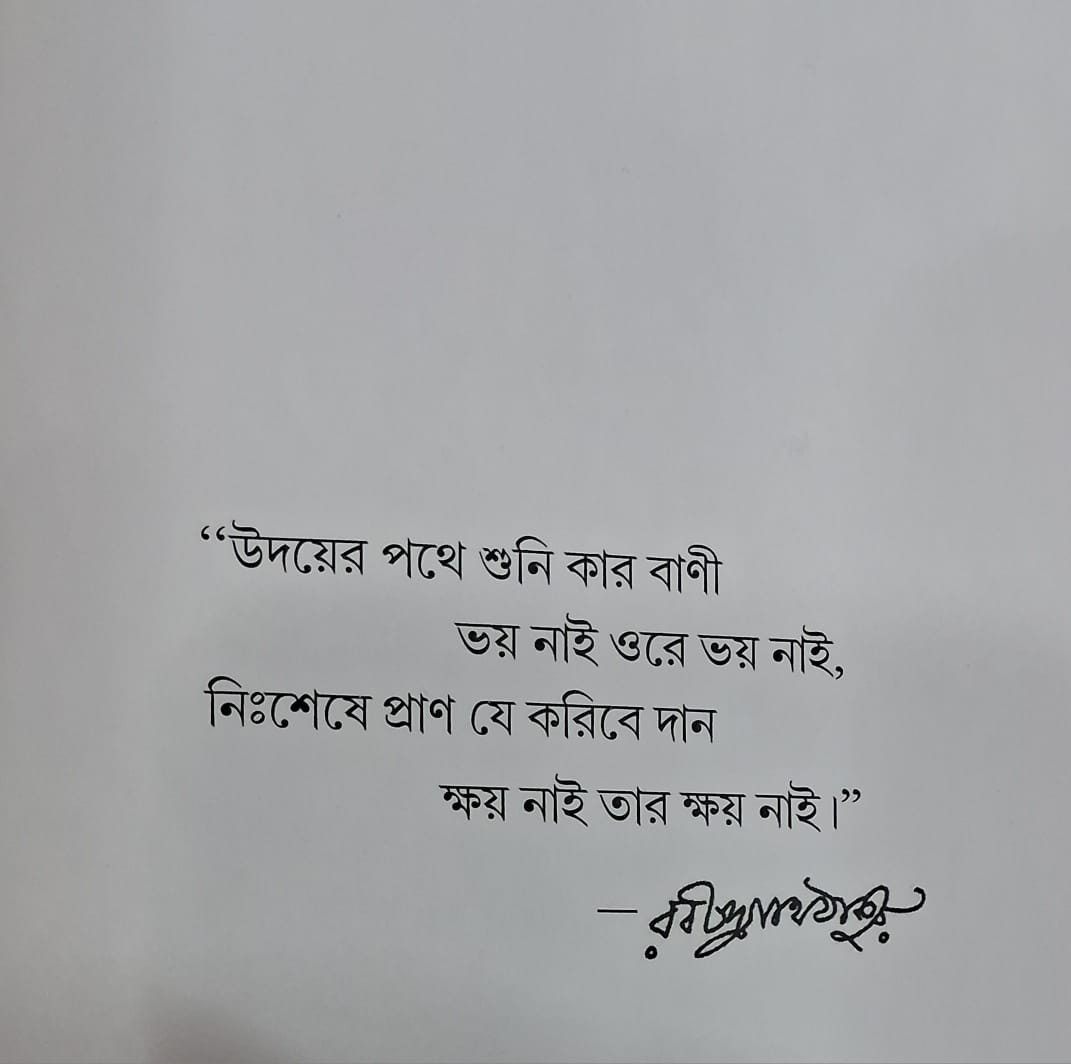 “উদয়ের পথে শুনি কার বাণী
ভয় নাই ওরে ভয় নাই,
নিঃশেষে প্রাণ যে করিবে দান
ক্ষয় নাই তার ক্ষয় নাই।”
— রবীন্দ্রনাথ ঠাকুর